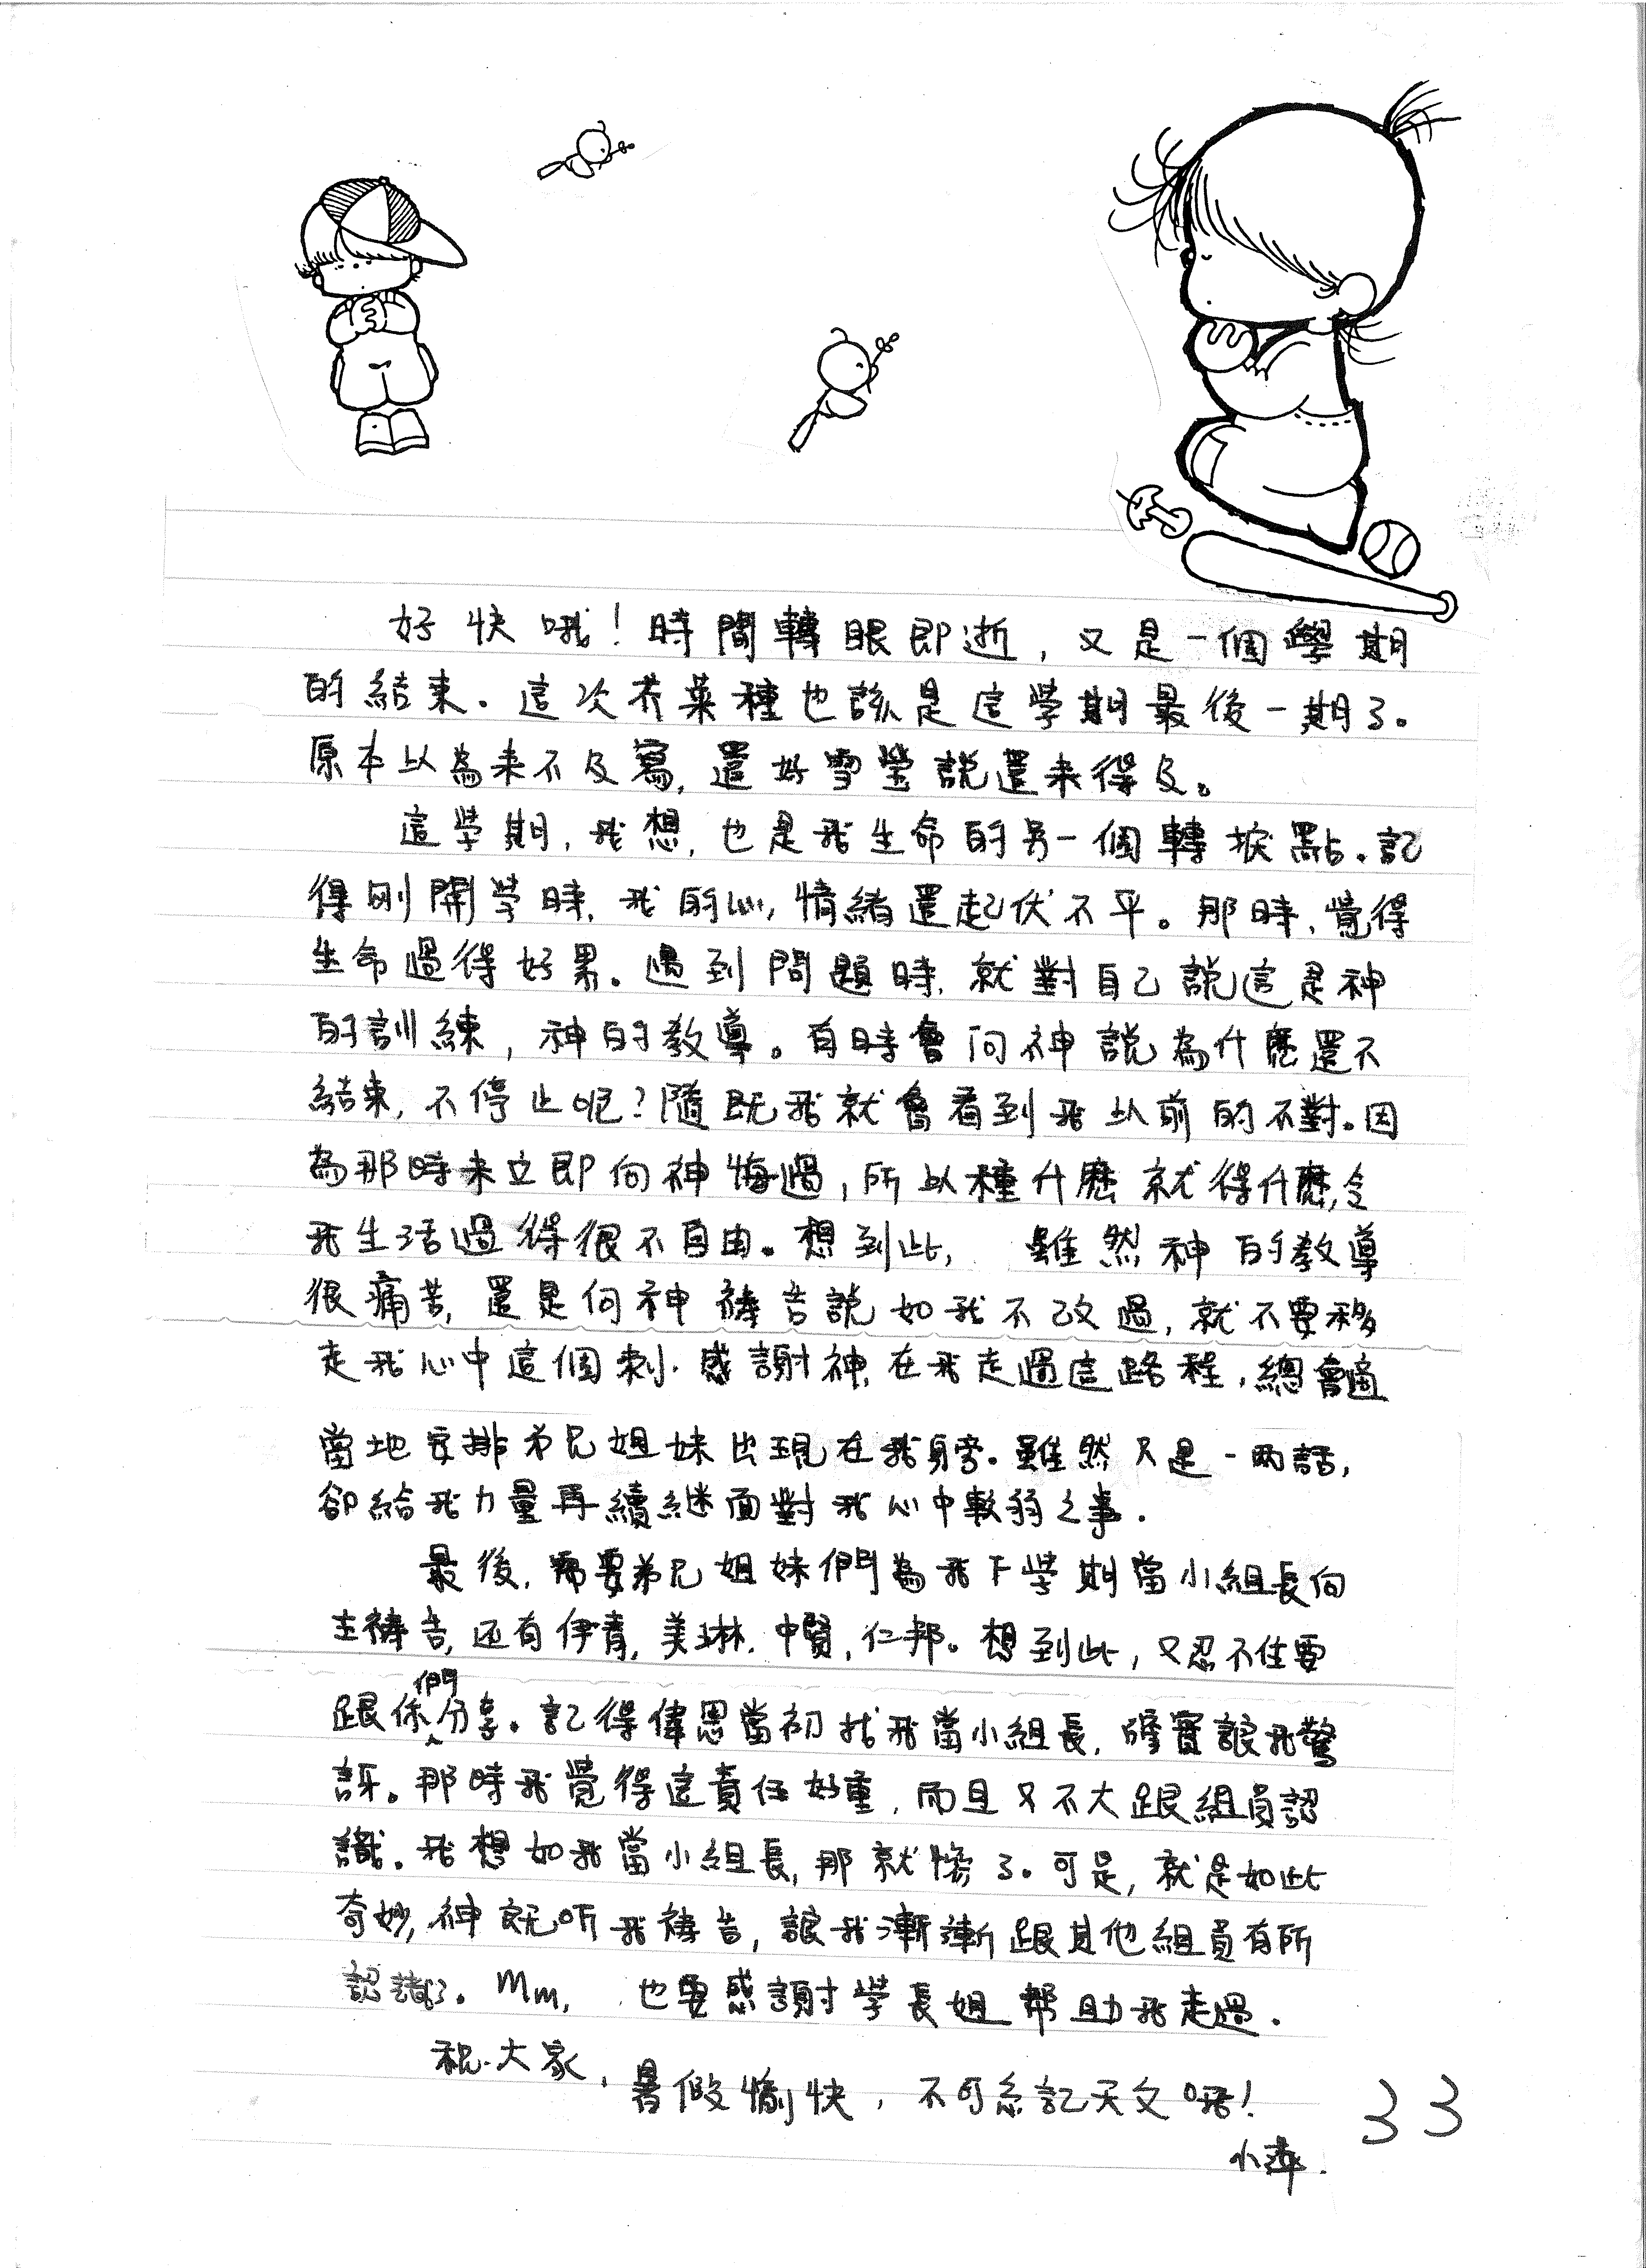 好快哦！時間轉眼即逝，又是一個學期
的結束。這次芥菜種也該是這學期最後一期了。
原本以為来不及寫，還好雪瑩說還来得及。
這學期，我想，也是我生命的另一個轉捩點。記
得剛開學時，我的心，情緒還起伏不平。那時，覺得
生命過得好累。遇到問題時，就對自己說這是神
的訓練，神的教導。有時會问神說為什麽還不
結束，不停止呢？隨既我就會看到我以前的不對。因
為那時未立即向神悔過，所以種什麽就得什麽，令
我生活過得很不自由。想到此，雖然神的教導
很痛苦，還是向神禱告說如我不改過，就不要移
走我心中這個刺．感謝神，在我走過這路程，總會適
當地安排弟兄姐妹出現在我身旁。雖然只是一両話，
卻給我力量再續継面對我心中軟弱之事．
最後，需要弟兄姐妹們為我下學期當小組長向
主禱告，还有伊青，美琳，中賢，仁邦。想到此，又忍不住要
跟你們分享。記得偉恩當初找我當小組長，確實讓我驚
訝。那時我覺得這責任好重，而且又不大跟組員認
識。我想如我當小組長，那就慘了。可是，就是如此
奇妙，神就听我禱告，讓我漸漸跟其他組員有所
認識了。Mm，也要感謝學長姐幫助我走過．
祝大家，暑假愉快，不可忘記天父哦！
小萍．
33